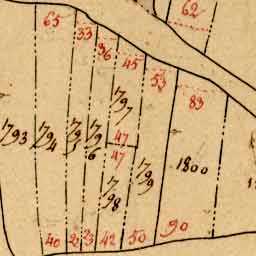 62
65
33
36
45
53
83
1793
1794
1795
1796
1797
47
47
1798
1799
1800
40
42
50
90